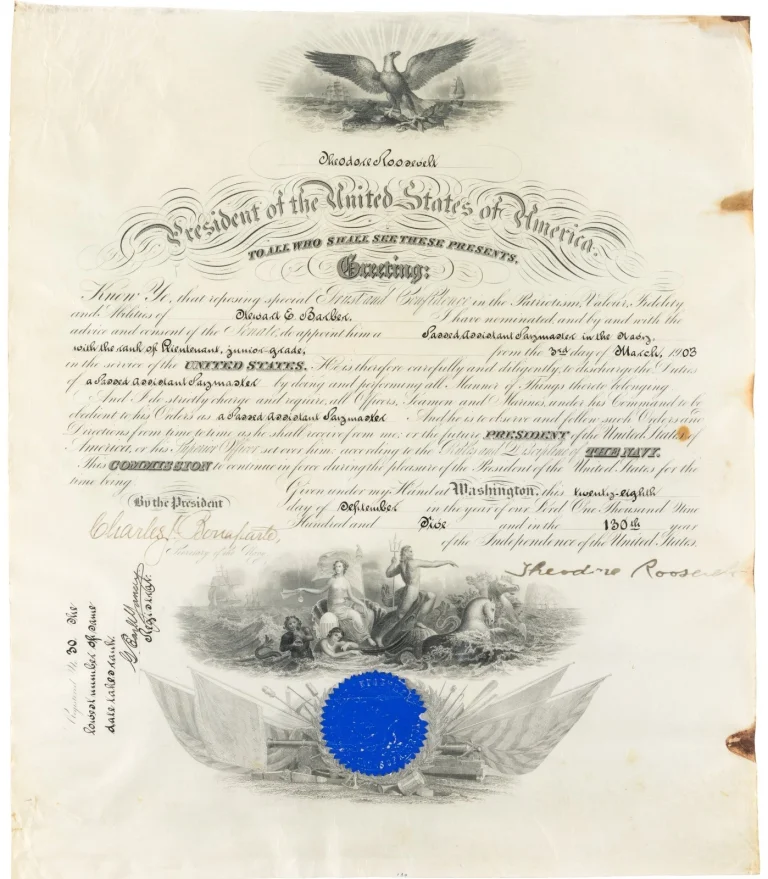 Theodore Roosevelt
President of the United States of America.
TO ALL WHO SHALL SEE THESE PRESENTS,
Greeting:
Know Ye, that reposing special Trust and Confidence in the Patriotism, Valour, Fidelity
and Abilities of Stewart E. Barber, I have nominated and by and with the
advice and consent of the Senate, do appoint him a Passed Assistant Paymaster in the Navy,
with the rank of Lieutenant, junior grade, from the 3rd day of March, 1903
in the service of the UNITED STATES. He is therefore carefully and diligently to discharge the Duties
of a Passed Assistant Paymaster by doing and performing all Manner of Things thereto belonging
And I do strictly charge and require all Officers, Seamen and Marines, under his Command to be
obedient to his Orders as a Passed Assistant Paymaster And he is to observe and follow such Orders and
Directions from time to time as he shall receive from me, or the future PRESIDENT of the United States of
America, or his Superior Officer set over him, according to the Rules and Discipline of THE NAVY.
This COMMISSION to continue in force during the pleasure of the President of the United States for the
time being
Given under my Hand at Washington, this twenty-eighth
By the President
day of September in the year of our Lord One Thousand Nine
Charles J. Bonaparte,
Hundred and Five and in the 130th year
Secretary of the Navy.
of the Independence of the United States.
Theodore Roosevelt
Registered No. 30 The
lowest number of same
date takes rank.
Registrar.